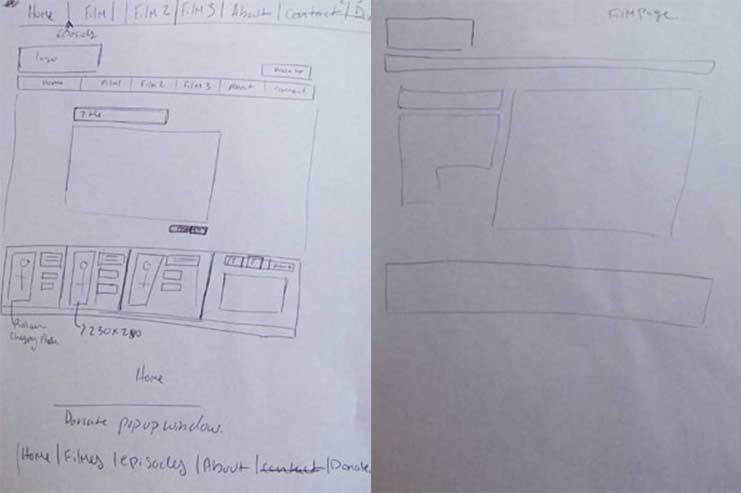 Home | Film 1 | Film 2 | Film 3 | About | Contact |
logo
Home | Film 1 | Film 2 | Film 3 | About | Contact
Title
230x280
Home
Donate popup window.
|Home|Filmes|episodes|About|contact|Donate
Film Page